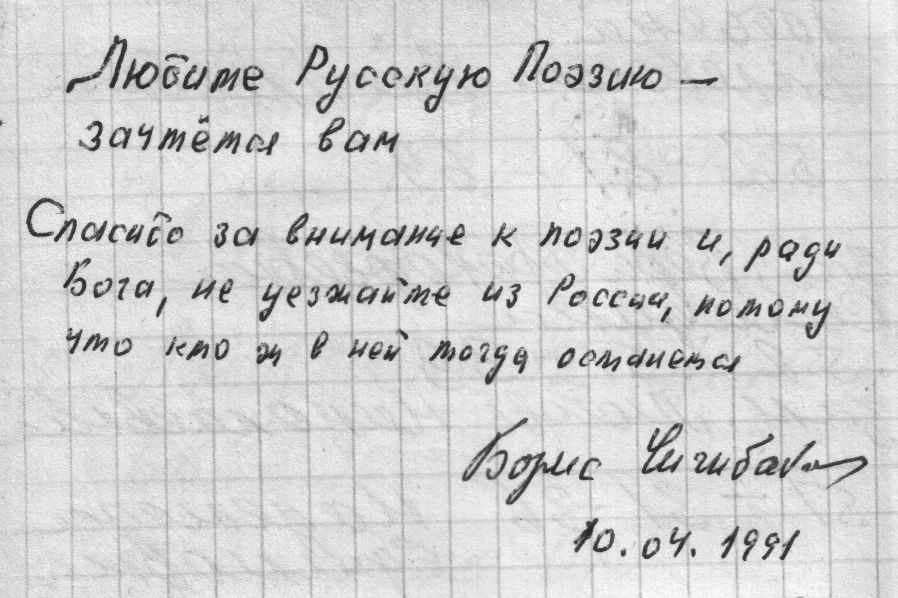 Любите Русскую Поэзию —
зачтётся вам
Спасибо за внимание к поэзии и, ради
Бога, не уезжайте из России, потому
что кто ж в ней тогда останется
Борис Чичибабин
10.04.1991